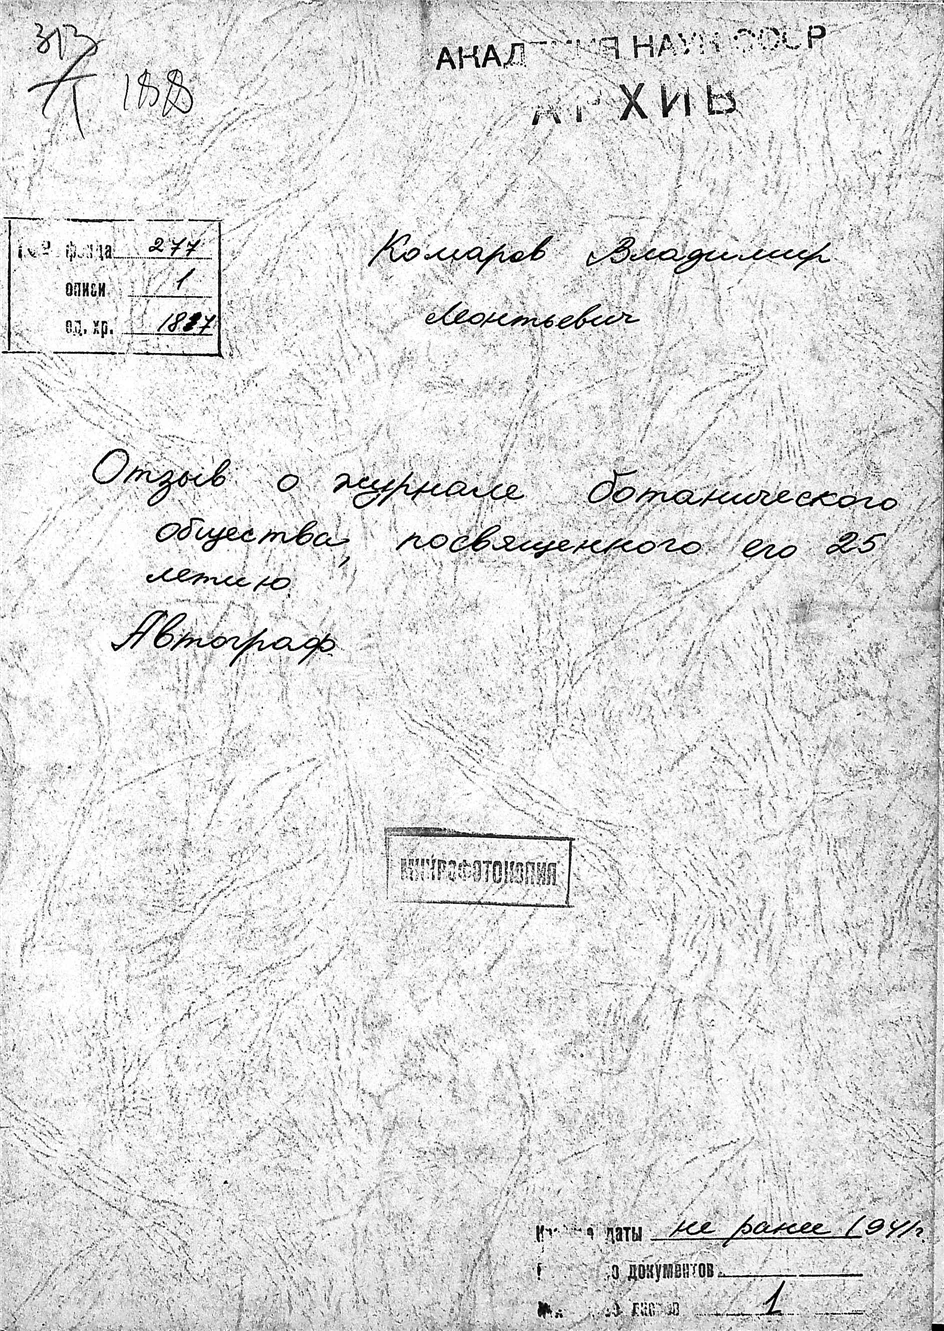 313
188
АКАДЕМИЯ НАУК СССР
АРХИВ
фонда 277
описи 1
ед. хр. 1827
Комаров Владимир
Леонтьевич
Отзыв о журнале ботанического
общества, посвященного его 25
летию
Автограф
МИКРОФОТОКОПИЯ
даты не ранее 1941г.
документов
листов 1